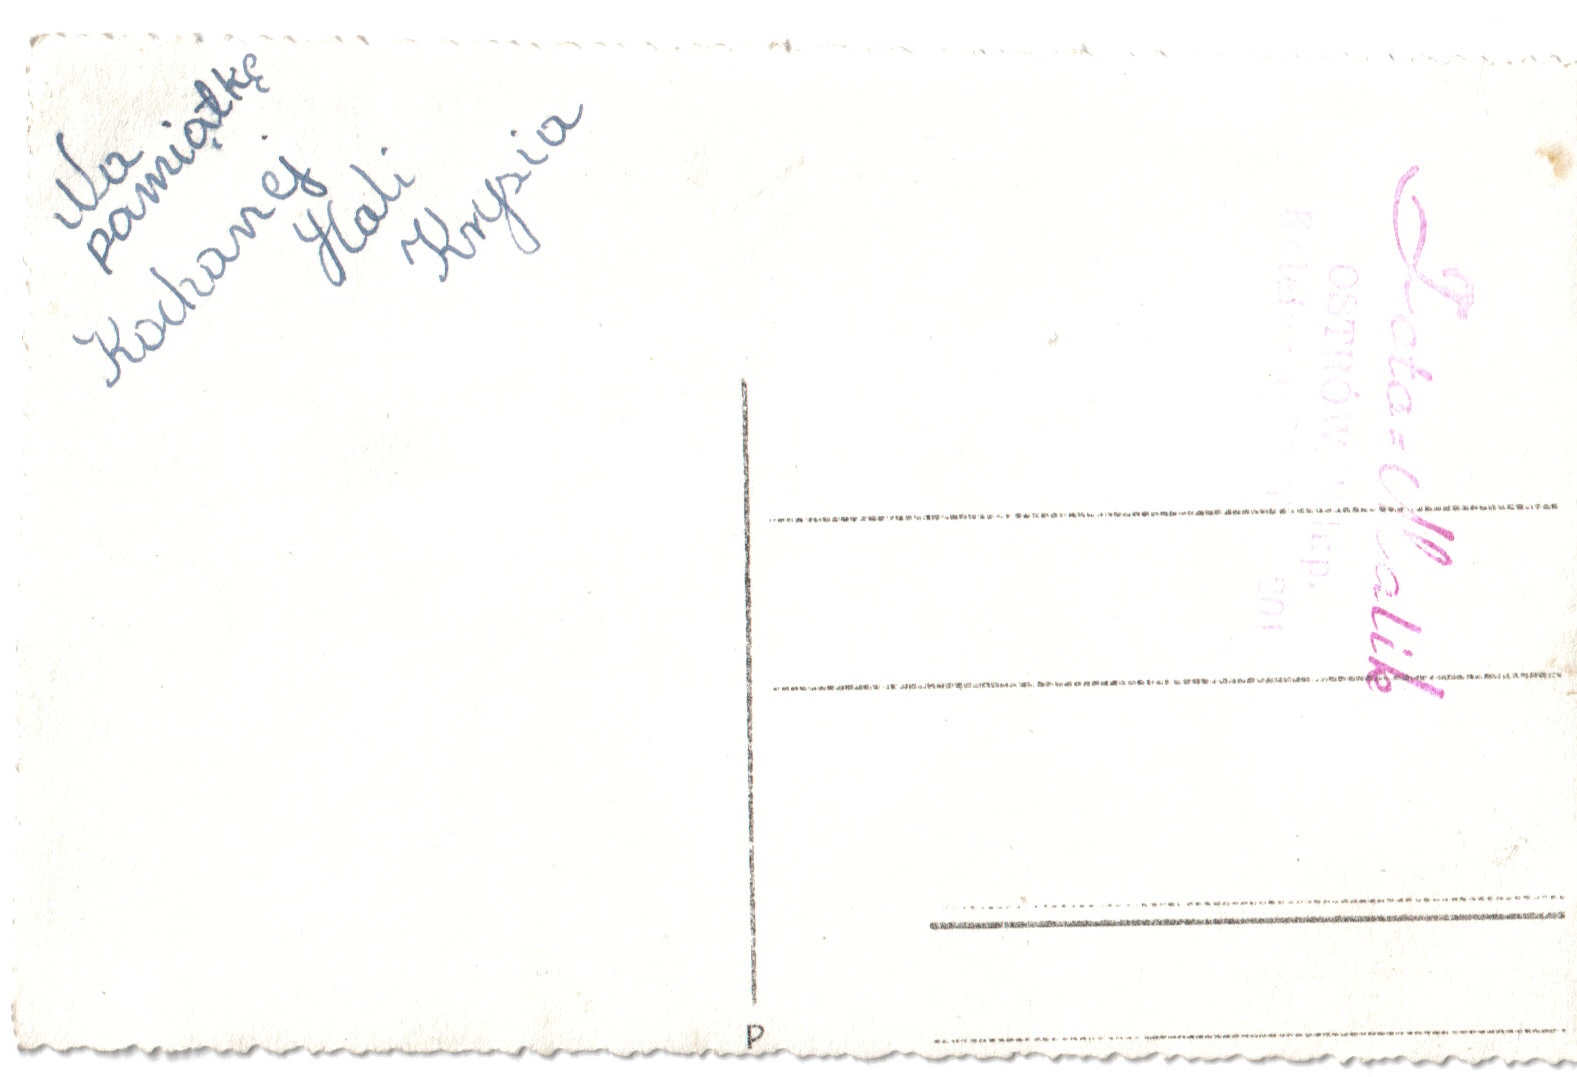 Na
pamiątkę
Kochanej
Hali
Krysia
Foto=Malik
OSTRÓW
P